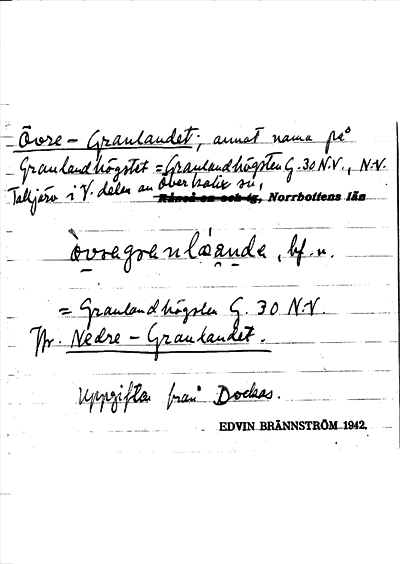 Övre – Granlandet; annat namn på
Granlandhögstet = Granlandhögsten G. 30 N.V., N.V.
Talljärv i V. delen av Överkalix sn,
Råneå sn och tg, Norrbottens län
òvregrenlåande, bf. n.
= Granlandhögsten G. 30 N.V.
Jfr. Nedre – Granlandet.
Uppgiften från Dockas.
EDVIN BRÄNNSTRÖM 1942.